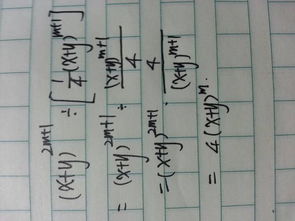 (x+y)^{2m+1} ÷ [\frac{1}{4}(x+y)^{m+1}]
= (x+y)^{2m+1} ÷ \frac{(x+y)^{m+1}}{4}
= (x+y)^{2m+1} · \frac{4}{(x+y)^{m+1}}
= 4(x+y)^{m}.